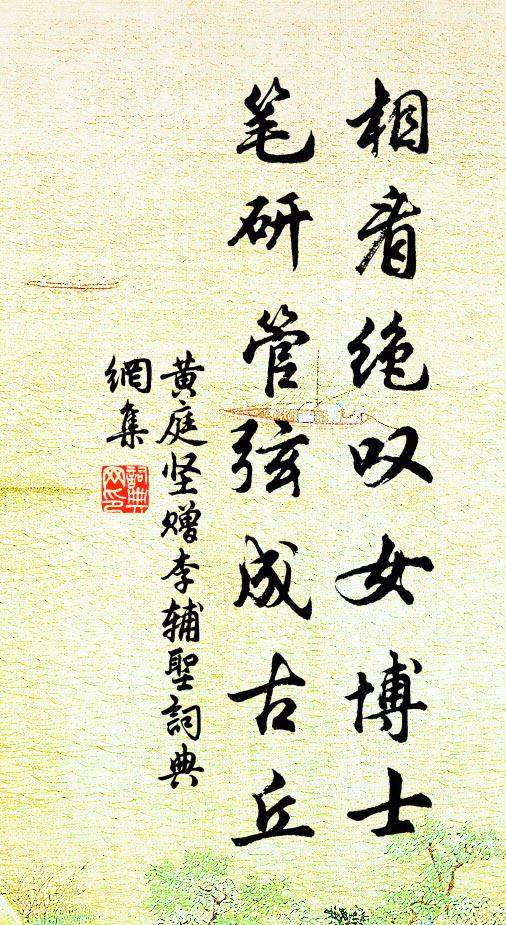 相看绝叹女博士
笔研管弦成古丘
黄庭坚赠李辅聖詞典
網集
詞典
网印